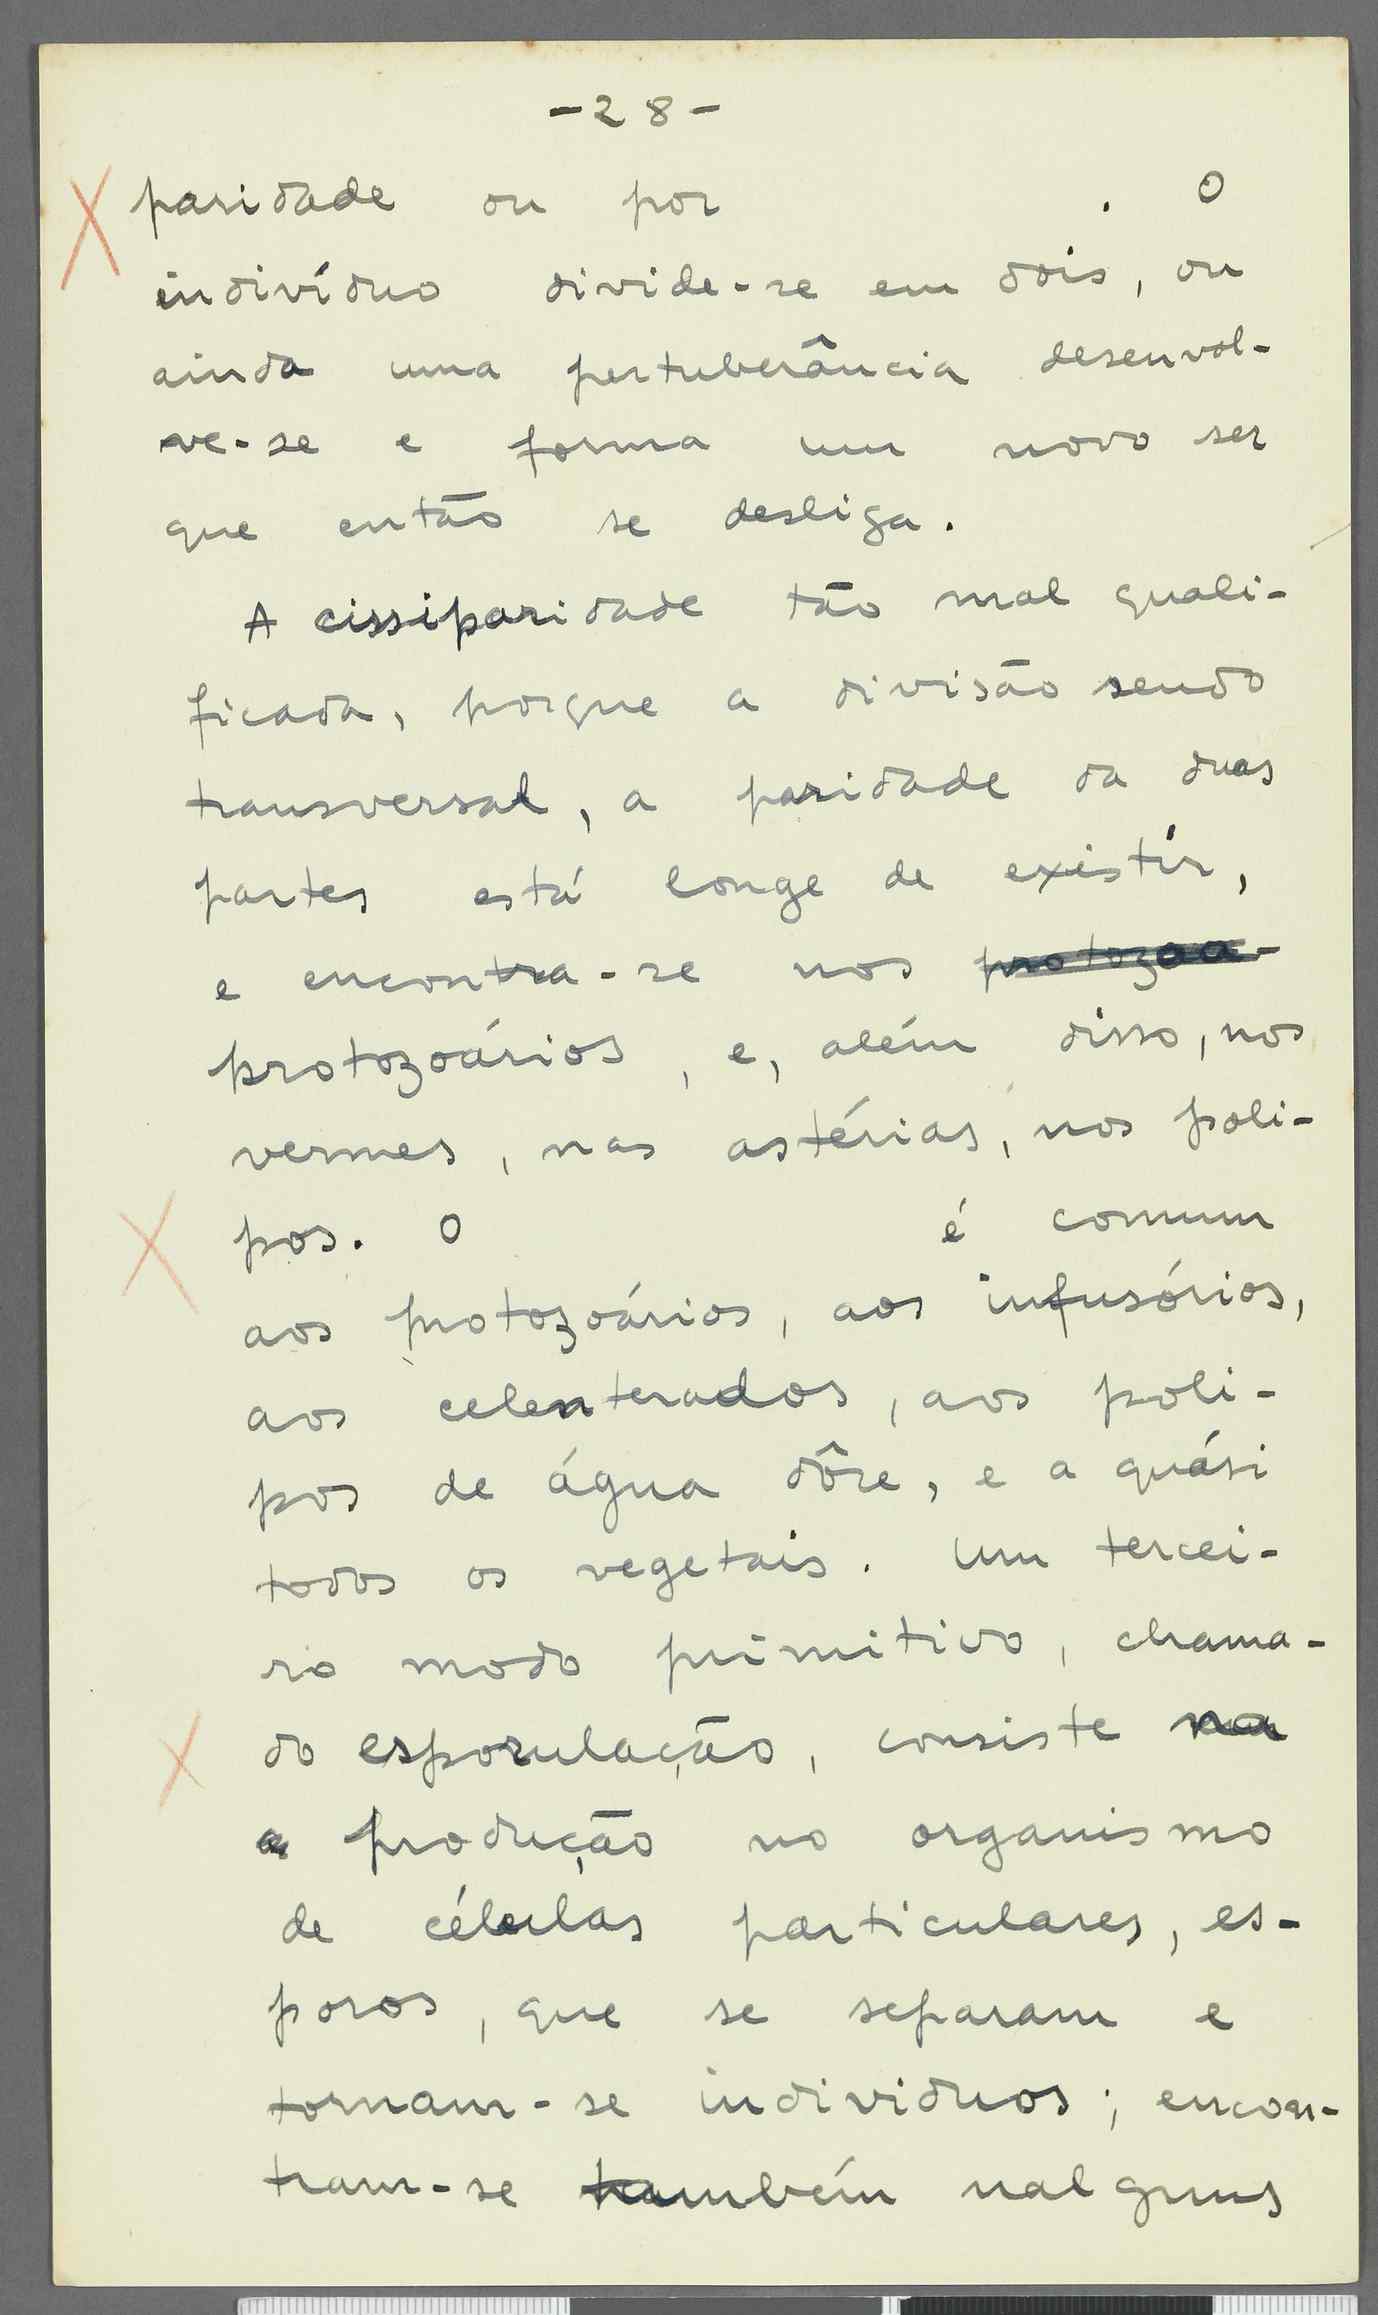 -28-
paridade ou por . O
indivíduo divide-se em dois, ou
ainda uma pertuberância desenvol-
ve-se e forma um novo ser
que então se desliga.
A cissiparidade tão mal quali-
ficada, porque a divisão sendo
transversal, a paridade da duas
partes está longe de existír,
e encontra-se nos protozoa-
protozoários, e, além disso, nos
vermes, nas astérias, nos poli-
pos. O é comum
aos protozoários, aos infusórios,
aos celenterados, aos poli-
pos de água dôce, e a quási
todos os vegetais. Um tercei-
ro modo primitivo, chama-
do esporulação, consiste na
a produção no organismo
de células particulares, es-
poros, que se separam e
tornam-se individuos; encon-
tram-se também nalguns